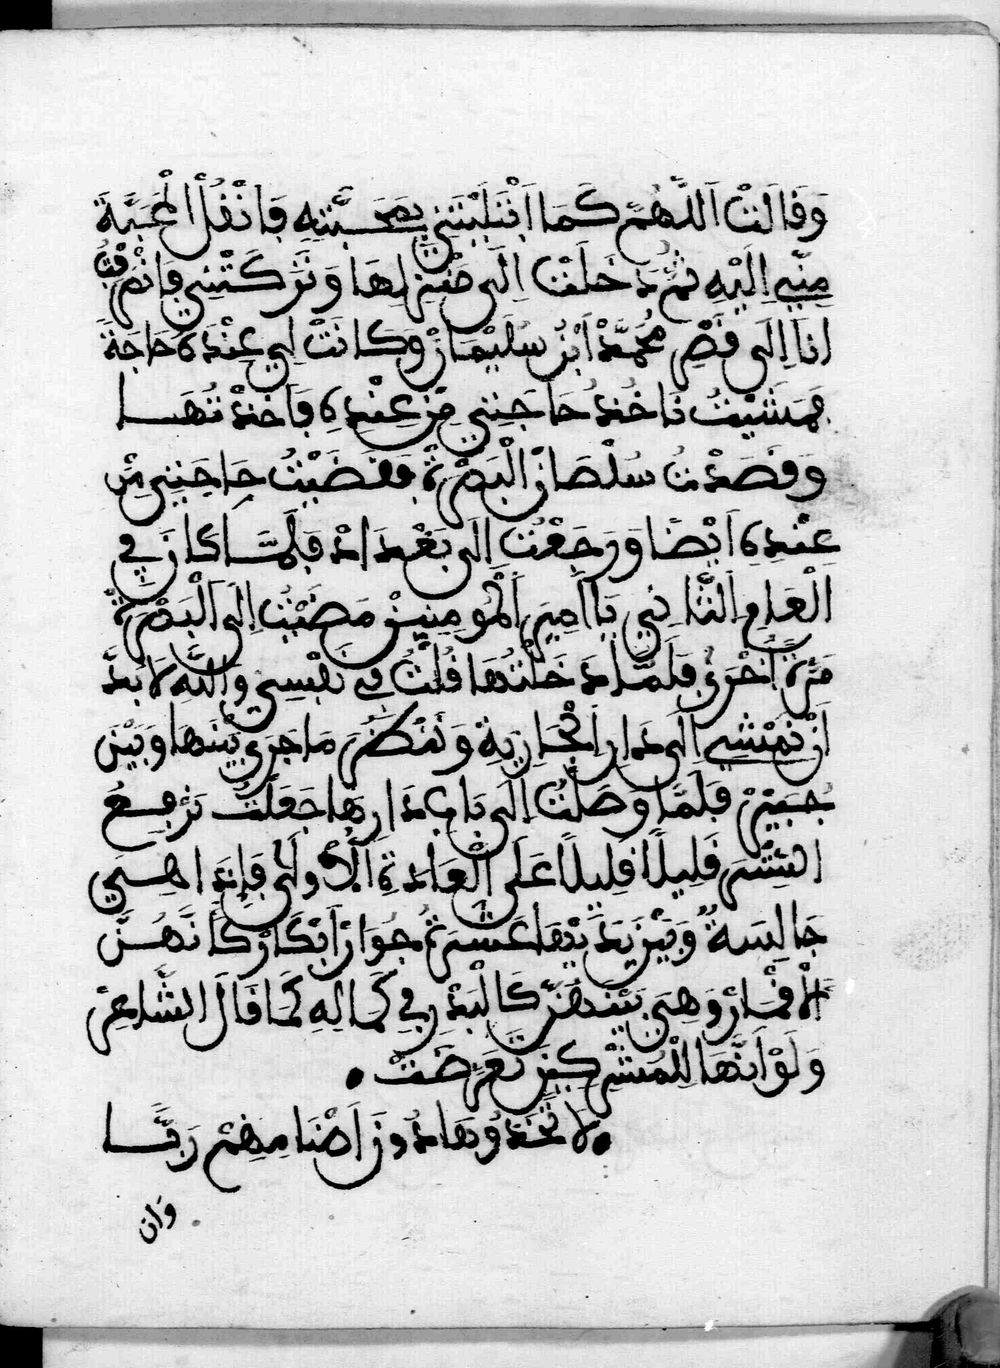 وَقَالَتْ اَللَّهُمَّ كَمَا اَبْتَلَيْتَنِي بِمَحَبَّتِهِ فَانْقُلْ الْمَحَبَّةَ
مِنِّي اِلَيْهِ ثُمَّ دَخَلَتْ اِلَى مَنْزِلِهَا وَتَرَكَتْنِي فَانْصَرَفْتُ
اَنَا اِلَى قَصْرِ مُحَمَّدْ اَبْنُ سُلَيْمَانْ وَكَانَتْ لِي عِنْدَهُ حَاجَةً
فَمَشَيْتُ نَاخُذُ حَاجَتِي مِنْ عِنْدِهِ فَاَخَذْتُهَا
وَقَصَدْتُ سُلْطَانْ الْبَصْرَةْ فَقَضَيْتُ حَاجَتِي مِنْ
عِنْدِهِ اَيْضًا وَرَجَعْتُ اِلَى بَغْدَادْ فَلَمَّا كَانَ فِي
الْعَامِ الثَّانِي يَا اَمِيرَ اَلْمُومِنِينْ مَضَيْتُ اِلَى الْبَصْرَةْ
مَرَّةً اُخْرَى فَلَمَّا دَخَلْتُهَا قُلْتُ فِي نَفْسِي وَاللَّهِ لَا بُدَّ
اَنْ نَمْشِي اِلَى دَارِ اَلْجَارِيَةِ وَنَنْظُرَ مَا جَرَى بَيْنَهَا وَبَيْنَ
جُبَيْرْ فَلَمَّا وَصَلْتُ اِلَى بَابِ دَارِهَا جَعَلْتُ نَرْفِعُ
السِّتْرَ قَلِيلًا قَلِيلًا عَلَى الْعَادَةِ اَلْأُولَى فَإِذَا هِيَ
جَالِسَةٌ وَبَيْنَ يَدَيْهَا عَشَرَةُ جُوَارْ اَبْكَارْ كَاَنَّهُنَّ
الْاَقْمَارْ وَهِيَ بَيْنَهُنَّ كَالْبَدْرِ فِي كَمَالِهِ كَمَا قَالَ الشَّاعِرْ
وَلَوْ اَنَّهَا لِلْمُشْرِكِينَ تَعَرَّضَتْ •
• لَاتَّخَذُوهَا دُونَ اَصْنَامِهِمْ رَبَّا
وَان